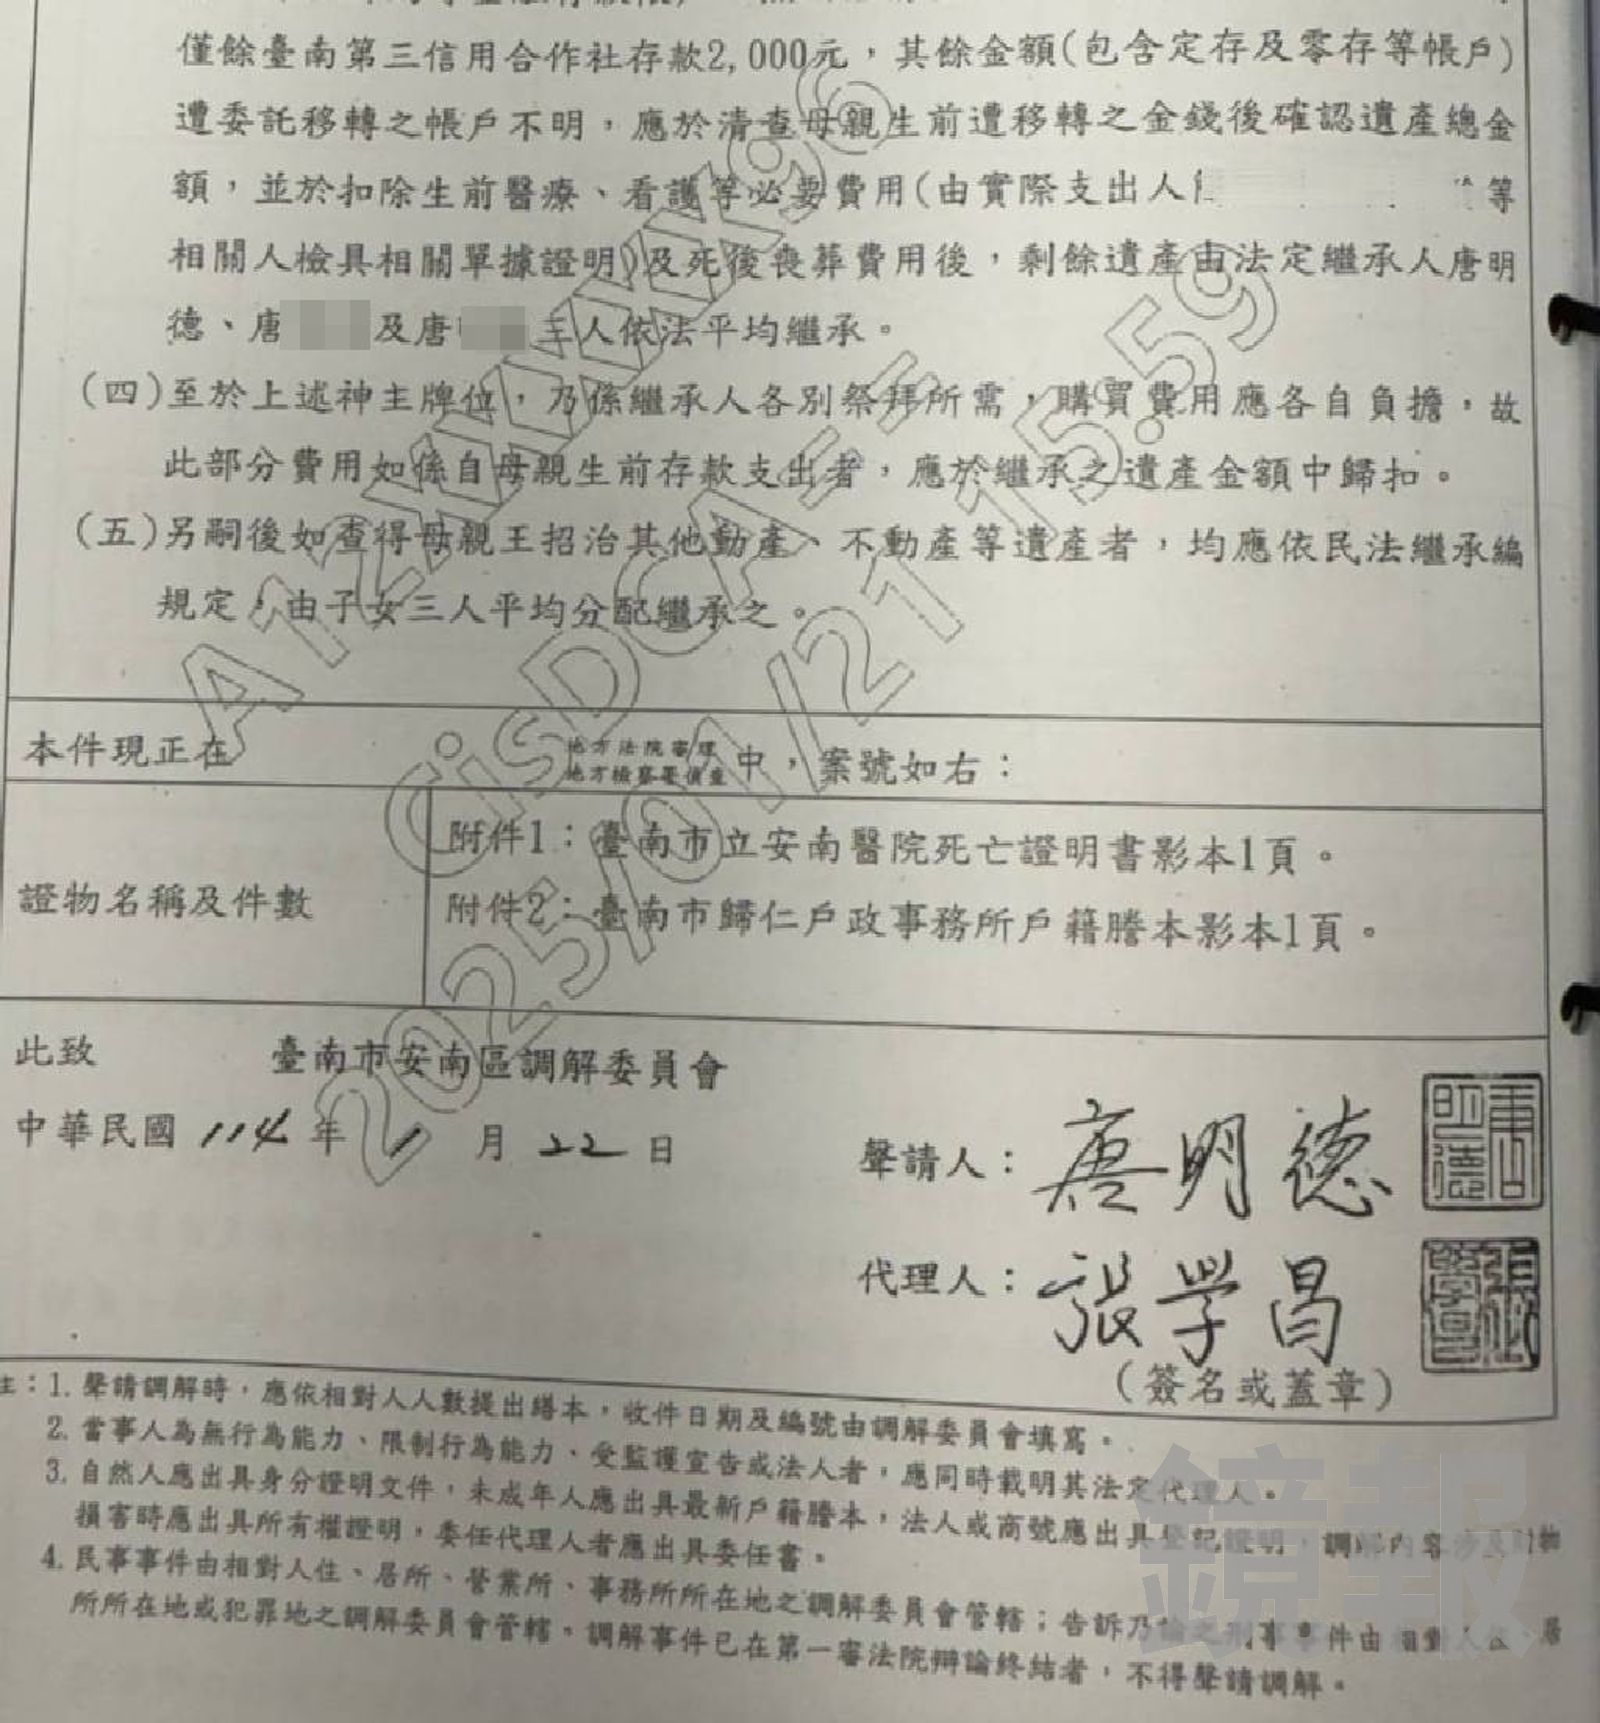 僅餘臺南第三信用合作社存款2,000元，其餘金額(包含定存及零存等帳戶)
遭委託移轉之帳戶不明，應於清查母親生前遭移轉之金錢後確認遺產總金
額，並於扣除生前醫療、看護等必要費用(由實際支出人 等
相關人檢具相關單據證明)及死後喪葬費用後，剩餘遺產由法定繼承人唐明
德、唐 及唐 三人依法平均繼承。
(四)至於上述神主牌位，乃係繼承人各別祭拜所需，購買費用應各自負擔，故
此部分費用如係自母親生前存款支出者，應於繼承之遺產金額中歸扣。
(五)另嗣後如查得母親王招治其他動產、不動產等遺產者，均應依民法繼承編
規定，由子女三人平均分配繼承之。
A12XXXXX96
CisDCA--
2025/01/21 15:59
本件現正在 地方法院審理 中，案號如右：
地方檢察署偵查
證物名稱及件數
附件1：臺南市立安南醫院死亡證明書影本1頁。
附件2：臺南市歸仁戶政事務所戶籍謄本影本1頁。
此致 臺南市安南區調解委員會
中華民國 114 年 1 月 22 日
聲請人：唐明德
唐明德
代理人：張学昌
張學昌
(簽名或蓋章)
註：1. 聲請調解時，應依相對人人數提出繕本，收件日期及編號由調解委員會填寫。
2. 當事人為無行為能力、限制行為能力、受監護宣告或法人者，應同時載明其法定代理人。
3. 自然人應出具身分證明文件，未成年人應出具最新戶籍謄本，法人或商號應出具登記證明，調解內容涉及財物
損害時應出具所有權證明，委任代理人者應出具委任書。
4. 民事事件由相對人住、居所、營業所、事務所所在地之調解委員會管轄；告訴乃論之刑事事件由相對人住、居
所所在地或犯罪地之調解委員會管轄。調解事件已在第一審法院辯論終結者，不得聲請調解。
鏡報